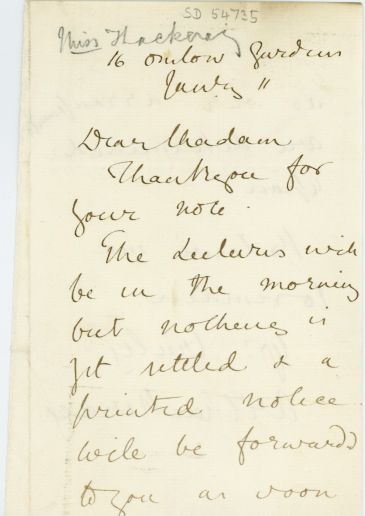 SD 54735
Miss Thackeray
16 Onslow Gardens
Janry 11
Dear Madam
Thank you for
your note.
The Lectures will
be in the morning
but nothing is
yet settled & a
printed notice
will be forwarded
to you as soon